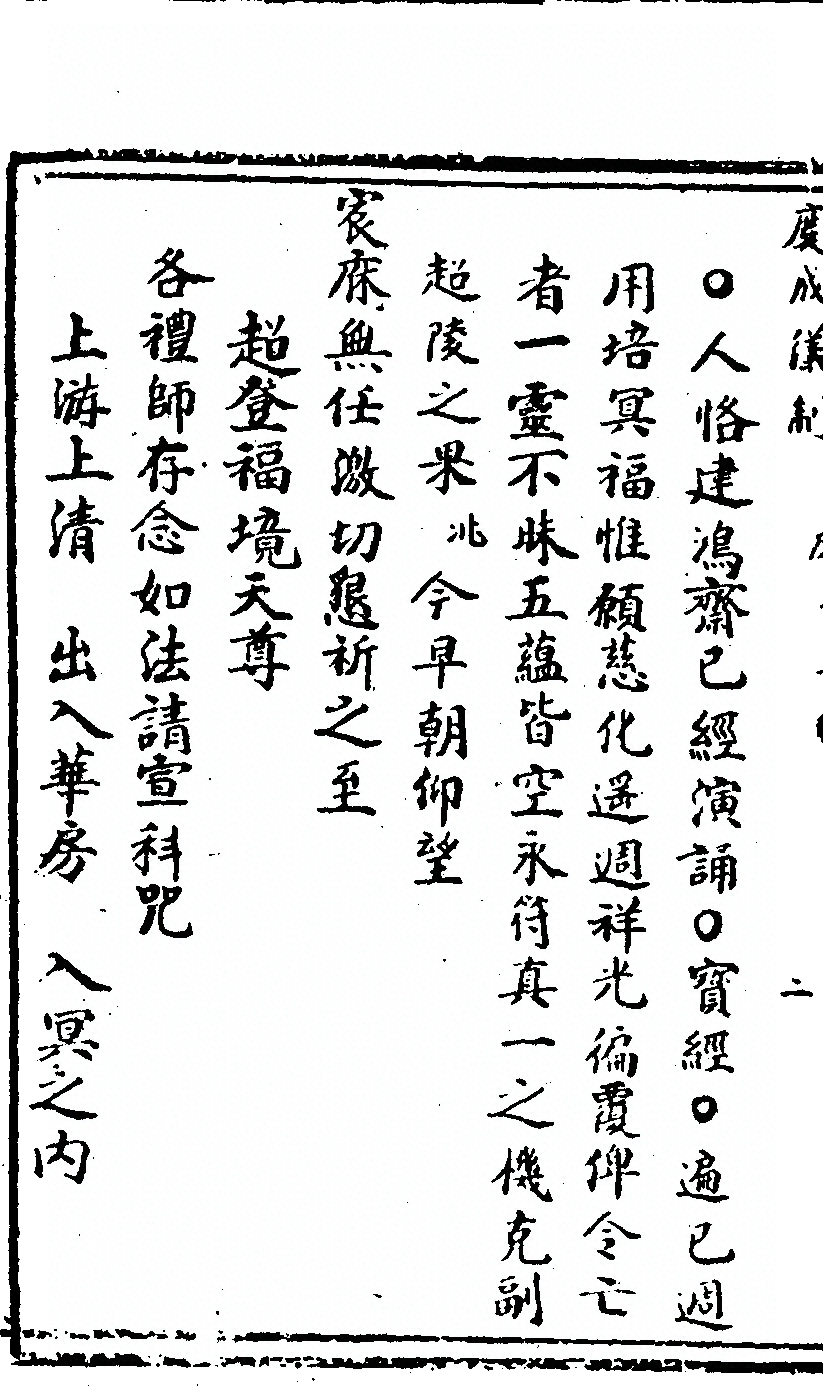 ○人恪建鴻齋已經演誦○寶經○遍已週
用培冥福惟願慈化遥週祥光徧覆俾令亡
者一靈不昧五蘊皆空永符真一之機克副
超陵之果兆今早朝仰望
宸庥無任激切懇祈之至
超登福境天尊
各禮師存念如法請宣科咒
上游上清　出入華房　入冥之内
二